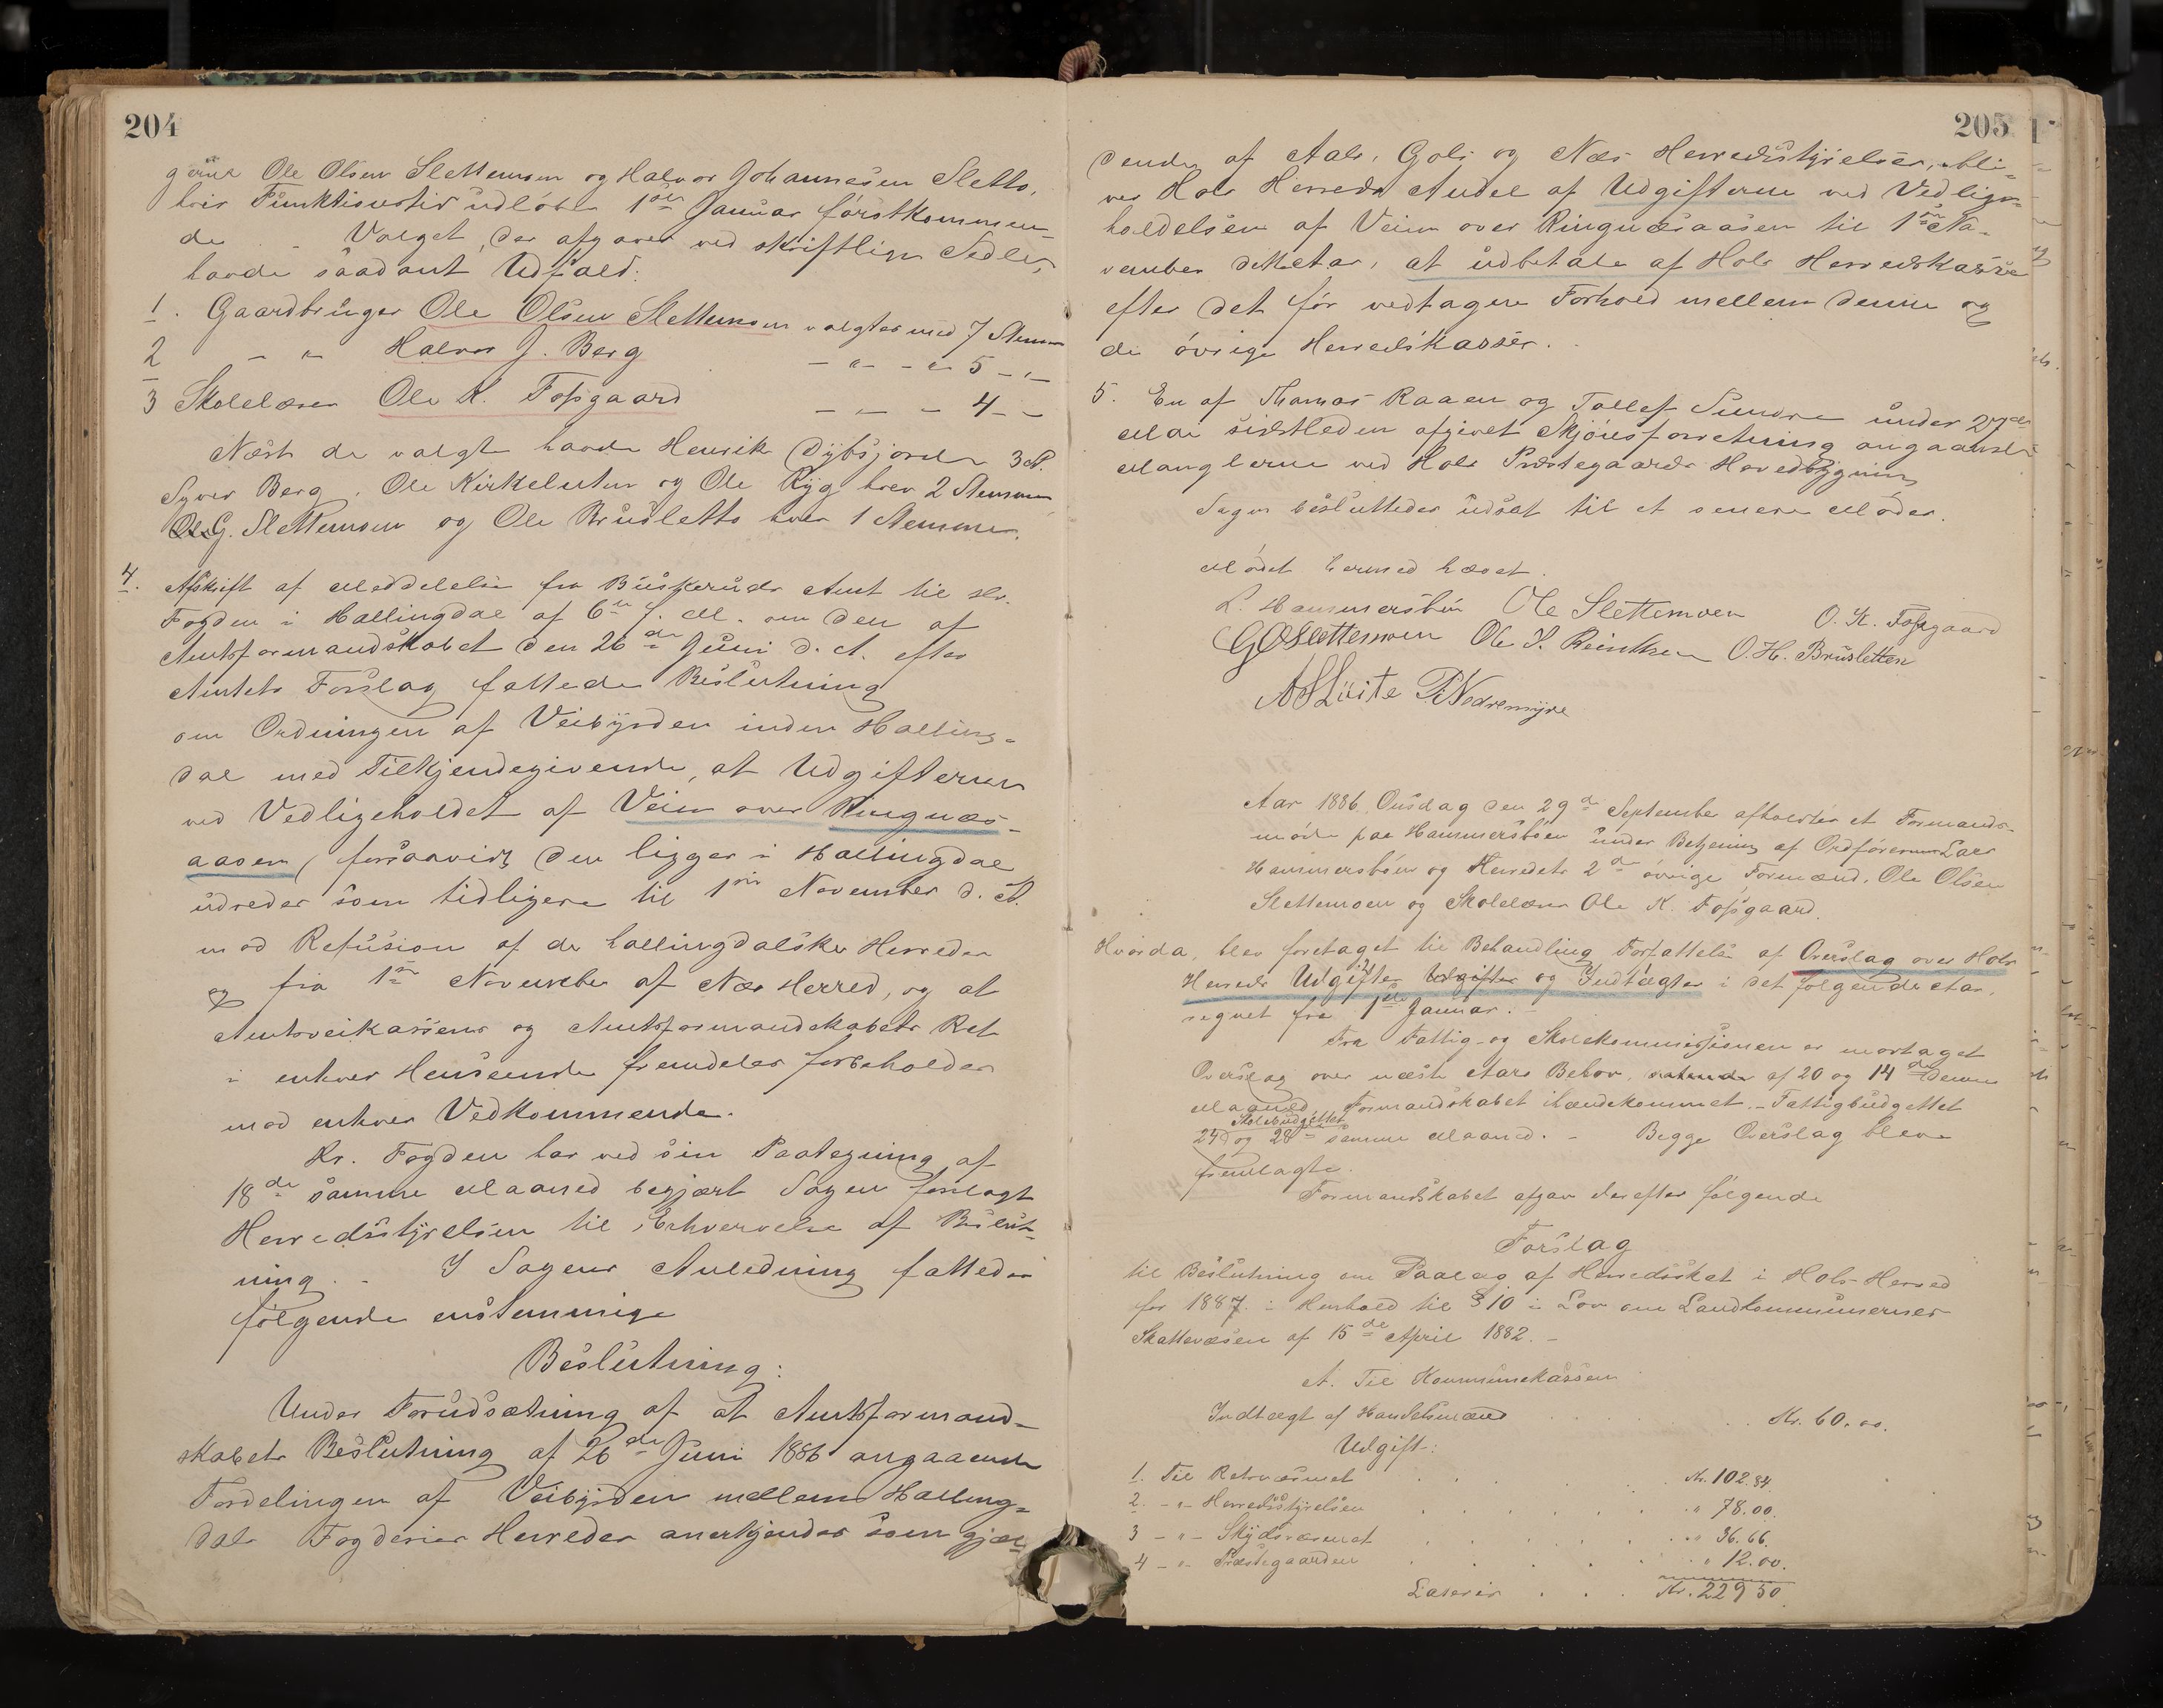 204
gane Ole Olsen Slettemoen og Halvor Johannesen Sletto,
hvis Funktionstid udløber 1ste Januar förstkommen-
de. Valget, der afgaves ved skriftlige Sedler,
havde saadant Udfald:
1. Gaardbruger Ole Olsen Slettemoen valgtes med 7 Stemmer
2 - " - Halvor J. Berg - " - - " - 5 - " -
3 Skolelærer Ole K. Fossgaard - " - - 4 - -
Næst de valgte havde Henrik Dybsjord 3 St.
Syver Berg, Ole Kirkelutun og Ole Ryg hver 2 Stemmer
G. Slettemoen og Ole Brusletto hver 1 Stemme.
4. Afskrift af Meddelelse fra Buskeruds Amt til Hr.
Fogden i Hallingdal af 6te f. M. om den af
Amtsformandskabet den 26de Juni d. A. efter
Amtets Forslag fattede Beslutning
om Ordningen af Veibyrden inden Halling-
dal med Tilkjendegivende, at Udgifterne
ved Vedligeholdet af Veien over Ringnæs-
aasen, forsaavidt den ligger i Hallingdal
udredes som tidligere til 1ste November d. A.
mod Refusion af de hallingdalske Herreder
og fra 1ste November af Næs Herred, og at
Amtsveikassens og Amtsformandskabets Ret
i enhver Henseende fremdeles forbeholdes
mod enhver Vedkommende.
Hr. Fogden har ved sin Paategning af
18de samme Maaned begjært Sagen forelagt
Herredsstyrelsen til Erhvervelse af Beslut-
ning. - I Sagens Anledning fattedes
følgende enstemmige
Beslutning:
Under Forudsætning af at Amtsformand-
skabets Beslutning af 26de Juni 1886 angaaende
Fordelingen af Veibyrden mellem Halling-
dals Fogderies Herreder anerkjendes som gjæl-
205
dende af Aals, Gols og Næs Herredsstyrelser, bli-
ver Hols Herreds Andel af Udgifterne ved Vedlige-
holdelsen af Veien over Ringnæsaasen til 1ste No-
vember dette Aar, at udbetale af Hols Herredskasse
efter det før vedtagne Forhold mellem denne og
de øvrige Herredskasser.
5. En af Thomas Raaen og Tollef Sundre under 27de
Mai sidstleden afgivet Skjönsforretning angaaende
Manglerne ved Hols Præstegaards Hovedbygning
Sagen besluttedes udsat til et senere Møde.
Mødet hermed hævet.
L. Hammersbøn Ole Slettemoen O. K. Fossgaard
G O Slettemoen Ole S. Reinthon O. H. Brusletten
A S Lüite P. Nedremyre
Aar 1886 Onsdag den 29de September afholdtes et Formands-
møde paa Hammersbøen under Betjening af Ordføreren Lars
Hammersbøen og Herredets 2de øvrige Formænd, Ole Olsen
Slettemoen og Skolelærer Ole K. Fossgaard.
Hvorda, blev foretaget til Behandling Forfattelse af Overslag over Hols
Herreds Udgifter Udgifter og Indtægter i det følgende Aar,
regnet fra 1ste Januar. -
Fra Fattig- og Skolekommissionen er modtaget
Overslag over næste Aars Behov, af 20 og 14de dennes
Maaned, Formandskabet ihændekommet. - Fattigbudgettet
Skolebudgettet
24 og 28 samme Maaned. - Begge Overslag bleve
fremlagte.
Formandskabet afgav derefter følgende
Forslag
til Beslutning om Paalæg af Herredsskat i Hols Herred
for 1887. i Henhold til § 10 i Lov om Landkommunernes
Skattevæsen af 15de April 1882. -
A. Til Kommunekassen
Indtægt af Handelsmænd . . . . Kr. 60.00.
Udgift:
1. Til Retsvæsenet . . . . Kr. 102.84.
2. - " - Herredsstyrelsen . . . . " 78.00.
3 - " - Skydsvæsenet . . . . " 36.66.
4 - " - Præstegaarden . . . . " 12.00.
Lateris . . . Kr. 229 50.